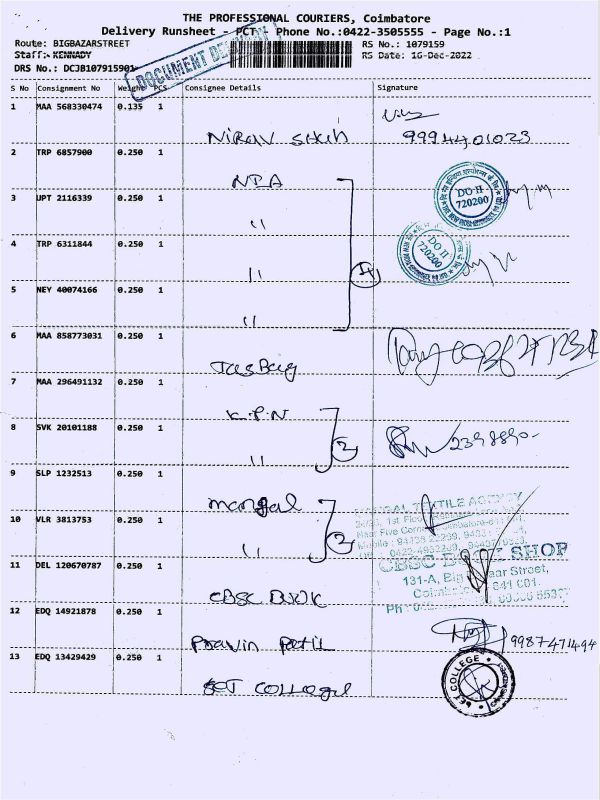 THE PROFESSIONAL COURIERS, Coimbatore
Delivery Runsheet - PCT - Phone No.:0422-3505555 - Page No.:1
Route: BIGBAZARSTREET RS No.: 1079159
Staff:- KENNADY RS Date: 16-Dec-2022
DRS No.: DCJB107915901
DOCUMENT DELIVERY
S No Consignment No Weight PCS Consignee Details Signature
1 MAA 568330474 0.135 1
Nirav Shah 9994401023
2 TRP 6857900 0.250 1
NIA
DO II
720200
3 UPT 2116339 0.250 1
"
DO II
720200
4 TRP 6311844 0.250 1
" 4
5 NEY 40074166 0.250 1
"
6 MAA 858773031 0.250 1
Jas Bag
7 MAA 296491132 0.250 1
K.P.N
8 SVK 20101188 0.250 1
" 2
9 SLP 1232513 0.250 1
mangal
TEXTILE AGENCY
10 VLR 3813753 0.250 1
" 2
11 DEL 120670787 0.250 1
CBSC BOOK SHOP
131-A, Big Bazaar Street,
CBSC BOOK
12 EDQ 14921878 0.250 1
Pravin Patil 9987471494
13 EDQ 13429429 0.250 1
BET College
BET COLLEGE